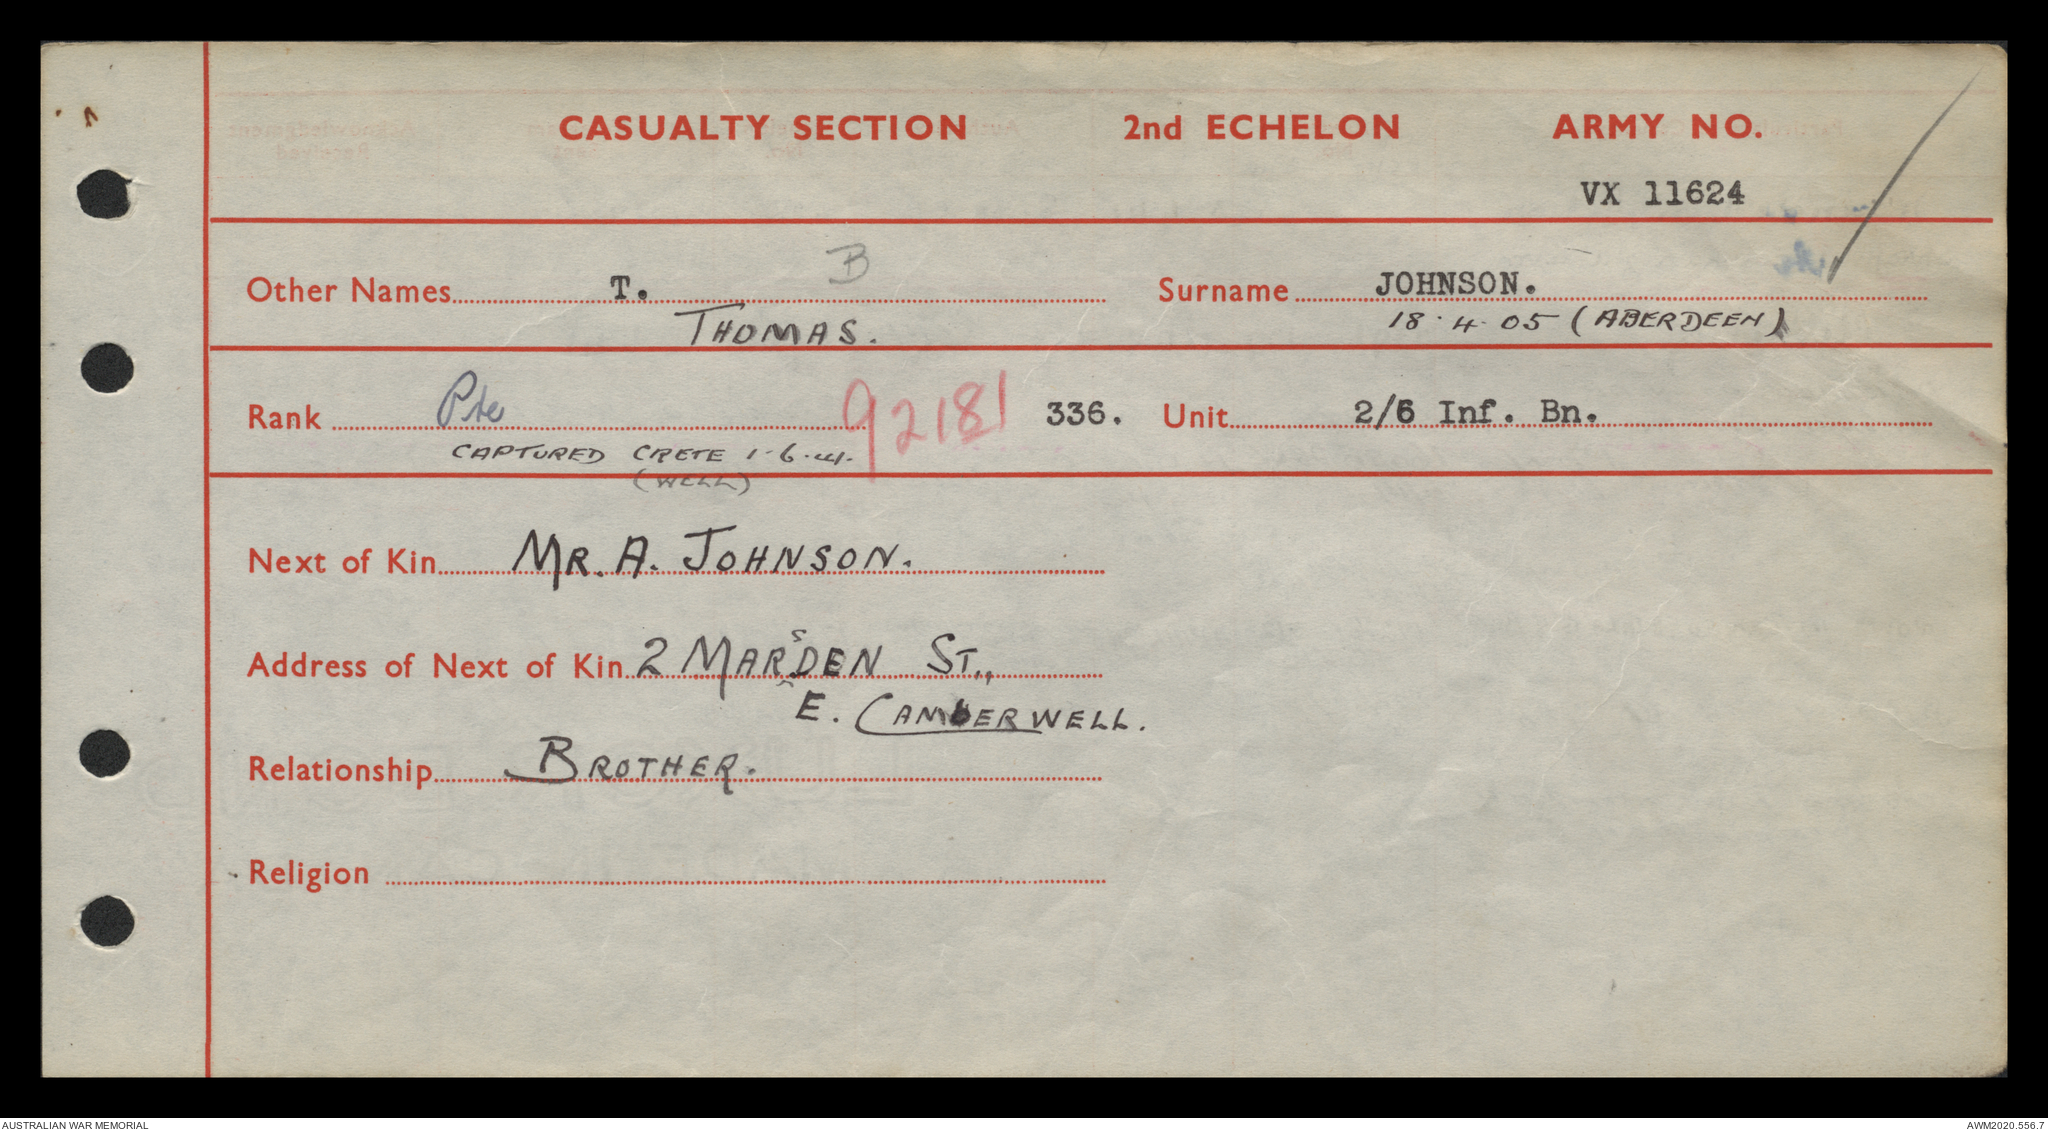 CASUALTY SECTION 2nd ECHELON ARMY NO.
VX 11624
B
Other Names T. Surname JOHNSON.
THOMAS. 18.4.05 (ABERDEEN)
Rank Pte 92181 336. Unit 2/6 Inf. Bn.
CAPTURED CRETE 1.6.41.
(WELL)
Next of Kin MR. A. JOHNSON.
Address of Next of Kin 2 MARSDEN ST.,
E. CAMBERWELL.
Relationship BROTHER.
Religion
AUSTRALIAN WAR MEMORIAL AWM2020.556.7